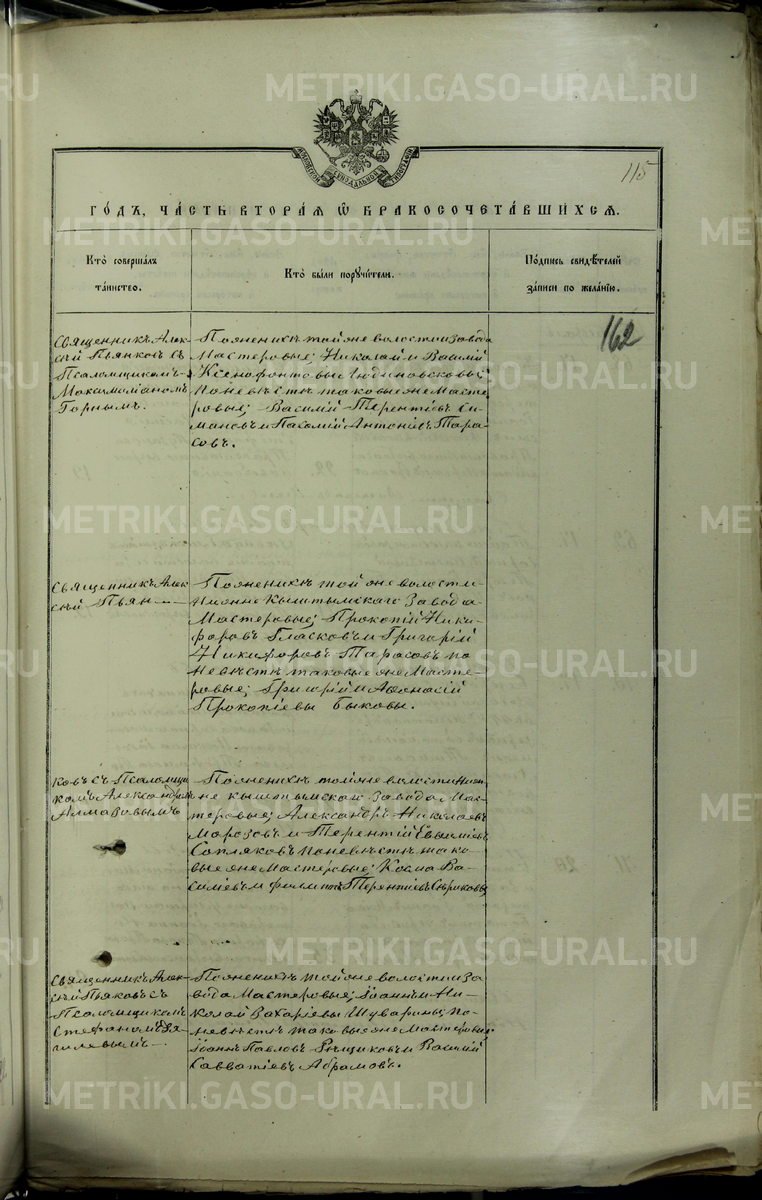 METRIKI.GASO-URAL.RU
115
ГО́ДЪ, ЧА́СТЬ ВТОРА́Я Ѡ БРАКОСОЧЕТА́ВШИХСЯ.
Кто̀ соверша́лъ та́инство.
Кто̀ бы́ли пору́чители.
По́дпись свидѣ́телей за́писи по жела́нію.
162
Священникъ Алек-
сѣй Пьянковъ съ
Псаломщикомъ
Максимиліаномъ
Горнымъ.
По женихѣ той же волости и завода
Мастеровые; Николай и Василій
Ксенофонтовы
По невѣстѣ таковые же Масте-
ровые; Василій Терентіевъ Си-
мановъ и Пахомій Антоніевъ Тара-
совъ.
Священникъ Алек-
сѣй Пьян-
По женихѣ той же волости
Нижне Кыштымскаго Завода
Мастеровые; Прокопій Ники-
форовъ Гласковъ и Григорій
Никифоровъ Тарасовъ по
Невѣстѣ таковые же Масте-
ровые; Григорій и Аѳанасій
Прокопіевы Быковы.
ковъ съ Псаломщи
комъ Александромъ
Алмазовымъ
По женихѣ той же волости Ниж-
не Кыштымскаго Завода Мас-
теровые; Александръ Николаевъ
Морозовъ и Терентій Евѳиміевъ
Сопляковъ по невѣстѣ тако-
вые же Мастеровые; Косма Ва-
силіевъ и Филиппъ Терентіевъ
Священникъ Алек-
сѣй Пьяковъ съ
Псаломщикомъ
Стефаномъ
По женихѣ той же волости и За
вода Мастеровые; Іоаннъ и Ни-
колай Захаріевы Шуварины; по
невѣстѣ таковые же Мастеровые
Іоаннъ Павловъ и Василій
Савватіевъ Абрамовъ.